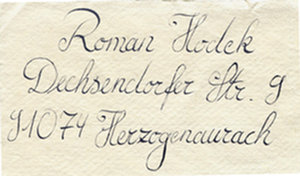 Roman Hodek
Dechsendorfer Str. 9
91074 Herzogenaurach